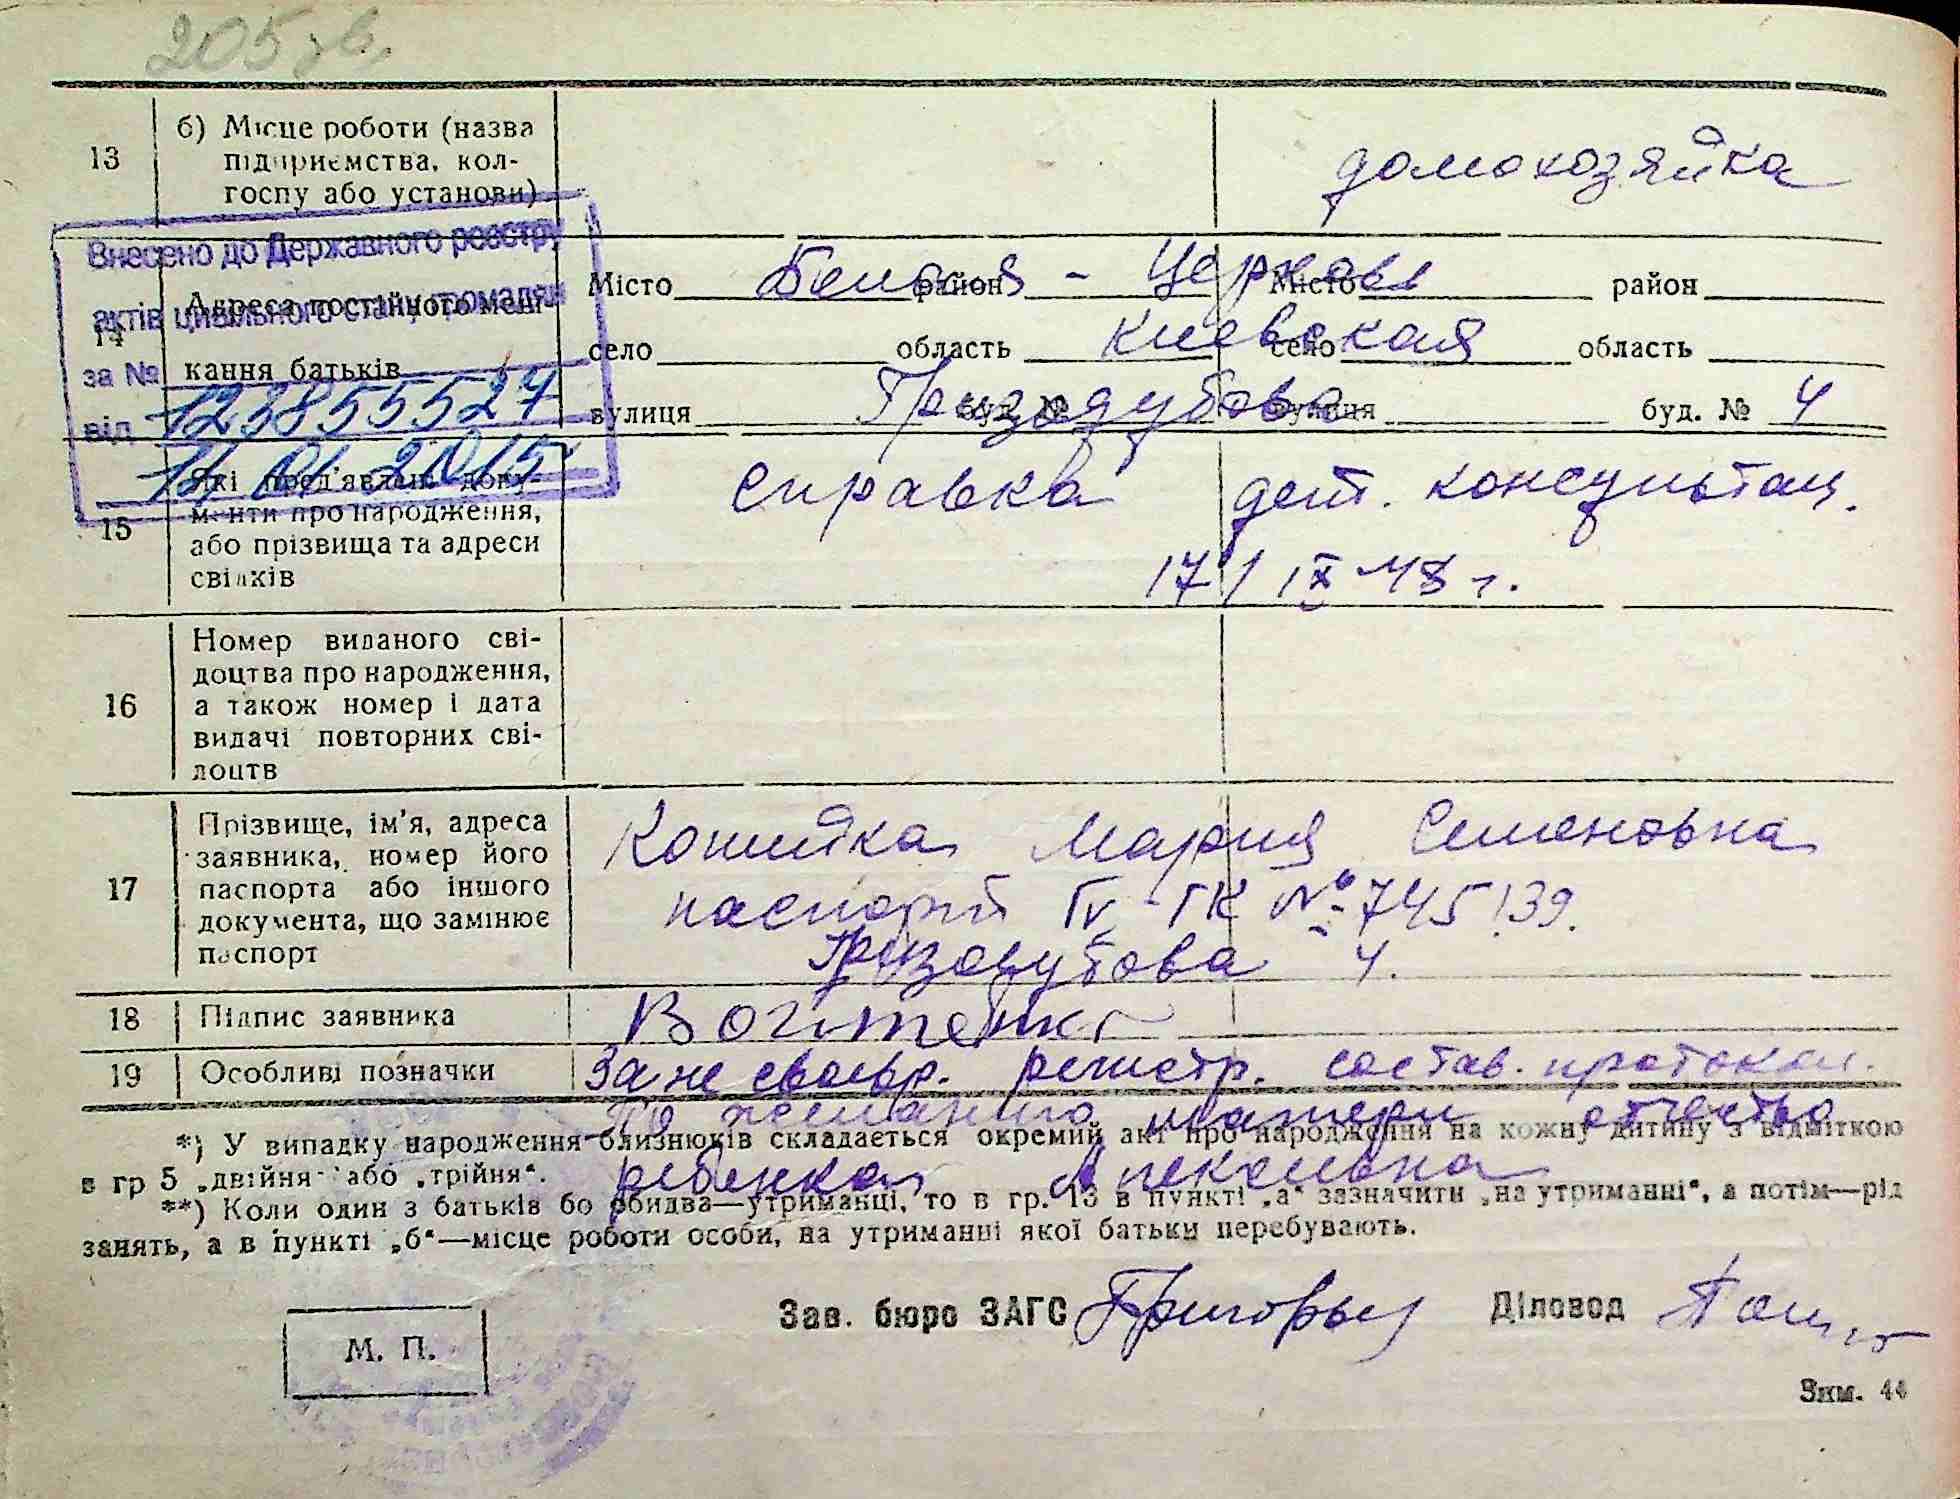 205 зв.
13
б) Місце роботи (назва
підприємства, кол-
госпу або установи)
домохозяйка
Внесено до Державного реєстру
актів цивільного стану громадян
за №
123855527
від
14
Адреса постійного меш-
кання батьків
Місто Белая - Церковь район Місто район
село область Киевская село область
вулиця Гризодубова буд. № вулиця буд. № 4
15
Які пред'явлені доку-
менти про народження,
або прізвища та адреси
свідків
Справка дет. консультац.
17/IX 48 г.
16
Номер виданого сві-
доцтва про народження,
а також номер і дата
видачі повторних сві-
доцтв
17
Прізвище, ім'я, адреса
заявника, номер його
паспорта або іншого
документа, що замінює
паспорт
Мария Семеновна
паспорт № 745139.
Гризодубова 4.
18
Підпис заявника
19
Особливі позначки
За не своевр. регистр. состав. протокол.
По желанию матери отчество
ребенка
*) У випадку народження близнюків складається окремий акт про народження на кожну дитину з відміткою
в гр 5 „двійня" або „трійня".
**) Коли один з батьків бо обидва—утриманці, то в гр. 13 в пункті „а" зазначити „на утриманні", а потім—рід
занять, а в пункті „б"—місце роботи особи, на утриманні якої батьки перебувають.
М. П.
Зав. бюро ЗАГС
Діловод
Зам. 44